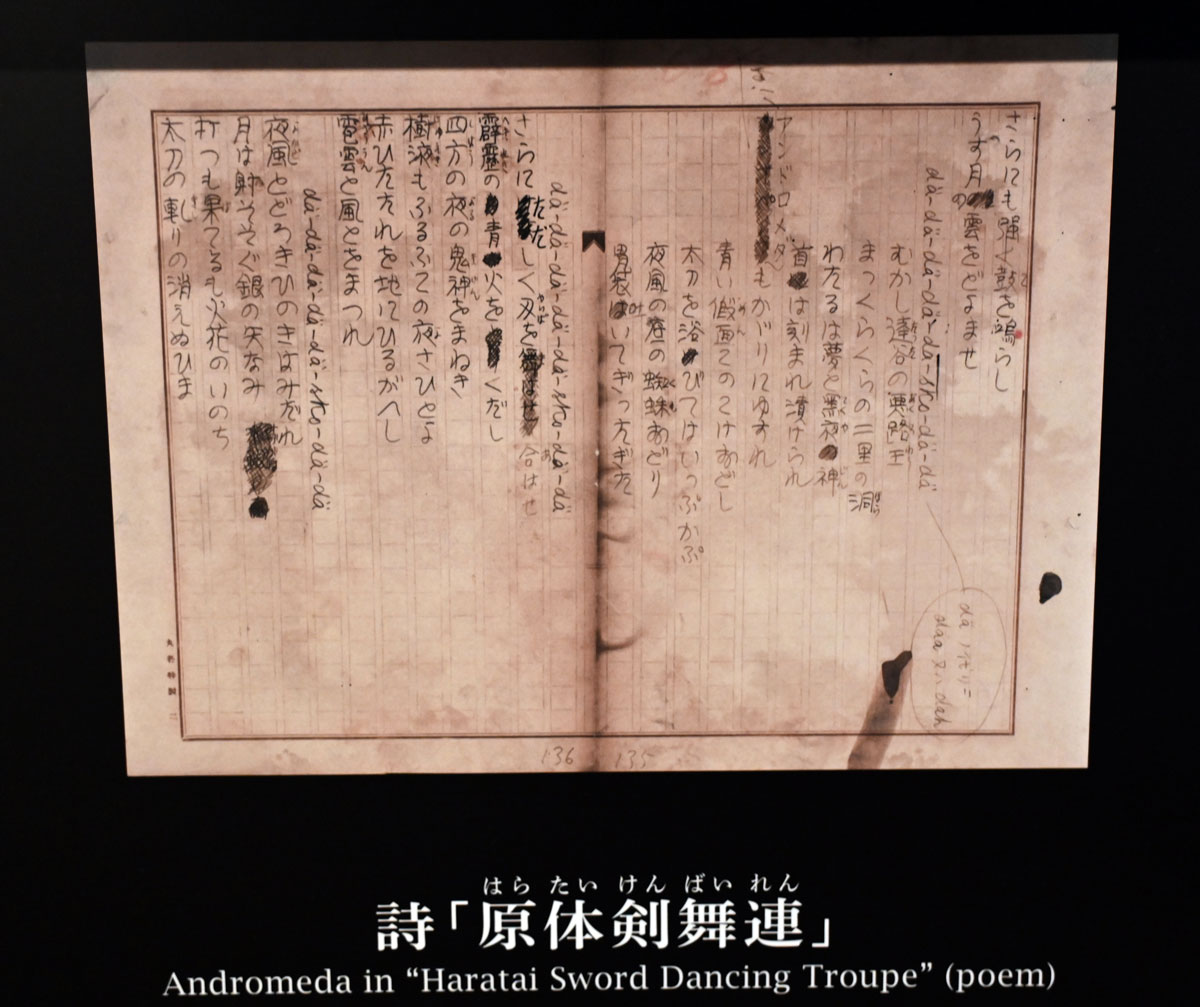 さらにも強く鼓を鳴らし
うす月の雲をどよませ
dä-dä-dä-dä-dä-sko-dä-dä
むかし達谷の悪路王
まっくらくらの二里の洞
わたるは夢と黒夜神
首は刻まれ漬けられ
アンドロメダもかゞりにゆすれ
青い仮面このこけおどし
太刀を浴びてはいっぷかぷ
夜風の底の蜘蛛おどり
胃袋はいてぎったぎた
dä-dä-dä-dä-dä-sko-dä-dä
さらにただしく刃を合はせ
霹靂の青火をくだし
四方の夜の鬼神をまねき
樹液もふるふこの夜さひとよ
赤ひたたれを地にひるがへし
雹雲と風とをまつれ
dä-dä-dä-dä-sko-dä-dä
夜風とどろきひのきはみだれ
月は射そそぐ銀の矢なみ
打つも果てるも火花のいのち
太刀の軋りの消えぬひま
136 135
はら たい けん ばい れん
詩「原体剣舞連」
Andromeda in “Haratai Sword Dancing Troupe” (poem)